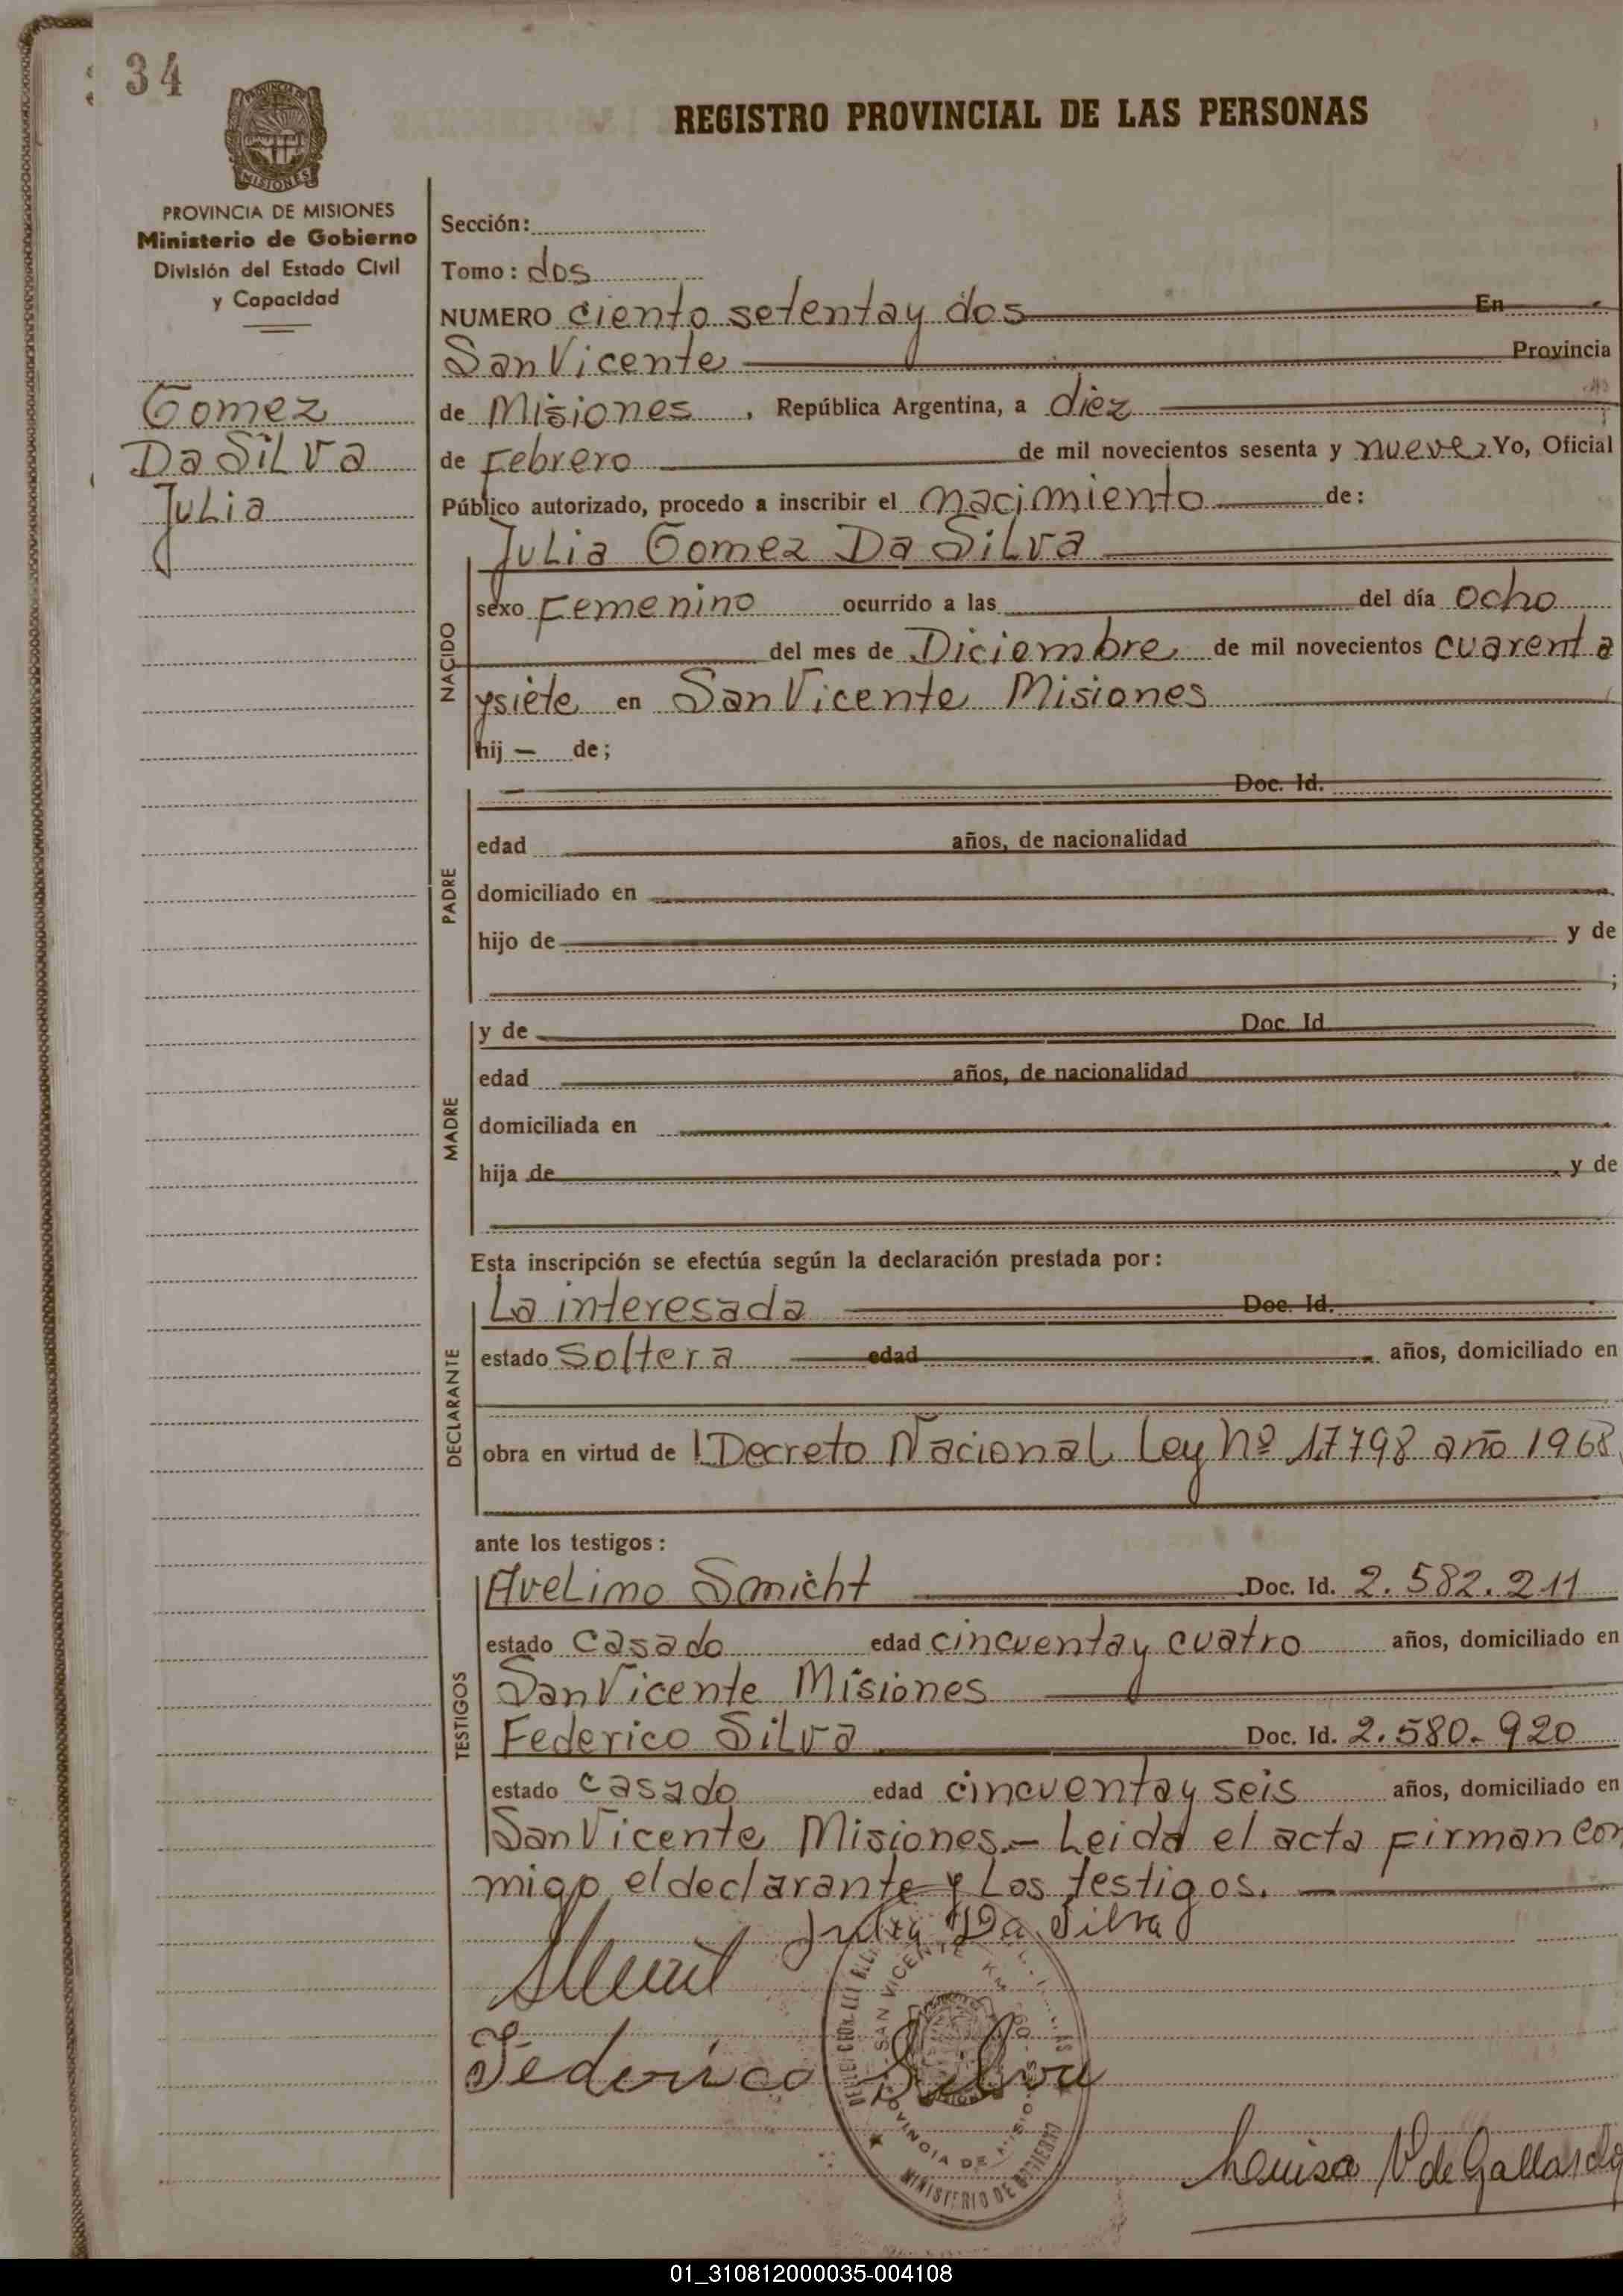 34
PROVINCIA DE MISIONES
REGISTRO PROVINCIAL DE LAS PERSONAS
PROVINCIA DE MISIONES
Ministerio de Gobierno
División del Estado Civil
y Capacidad
Gomez
Da Silva
Julia
Sección:
Tomo: dos
NUMERO ciento setenta y dos En
San Vicente Provincia
de Misiones, República Argentina, a diez
de Febrero de mil novecientos sesenta y nueve, Yo, Oficial
Público autorizado, procedo a inscribir el nacimiento de:
NACIDO
Julia Gomez Da Silva
sexo Femenino ocurrido a las del día ocho
del mes de Diciembre de mil novecientos cuarenta
y siete en San Vicente Misiones
hij — de;
PADRE
Doc. Id.
edad años, de nacionalidad
domiciliado en
hijo de y de
;
MADRE
y de Doc. Id.
edad años, de nacionalidad
domiciliada en
hija de y de
Esta inscripción se efectúa según la declaración prestada por:
DECLARANTE
La interesada Doc. Id.
estado Soltera edad años, domiciliado en
obra en virtud de l Decreto Nacional Ley Nº 17798 año 1968
ante los testigos:
TESTIGOS
Avelimo Smicht Doc. Id. 2.582.211
estado casado edad cincuenta y cuatro años, domiciliado en
San Vicente Misiones
Federico Silva Doc. Id. 2.580.920
estado casado edad cincuenta y seis años, domiciliado en
San Vicente Misiones.- Leida el acta firman con
migo el declarante y Los testigos.
Julia Da Silva
Federico Silva
SAN VICENTE KM
PROVINCIA DE MISIONES
MINISTERIO DE GOBIERNO
Louisa V. de Gallardo
01_310812000035-004108